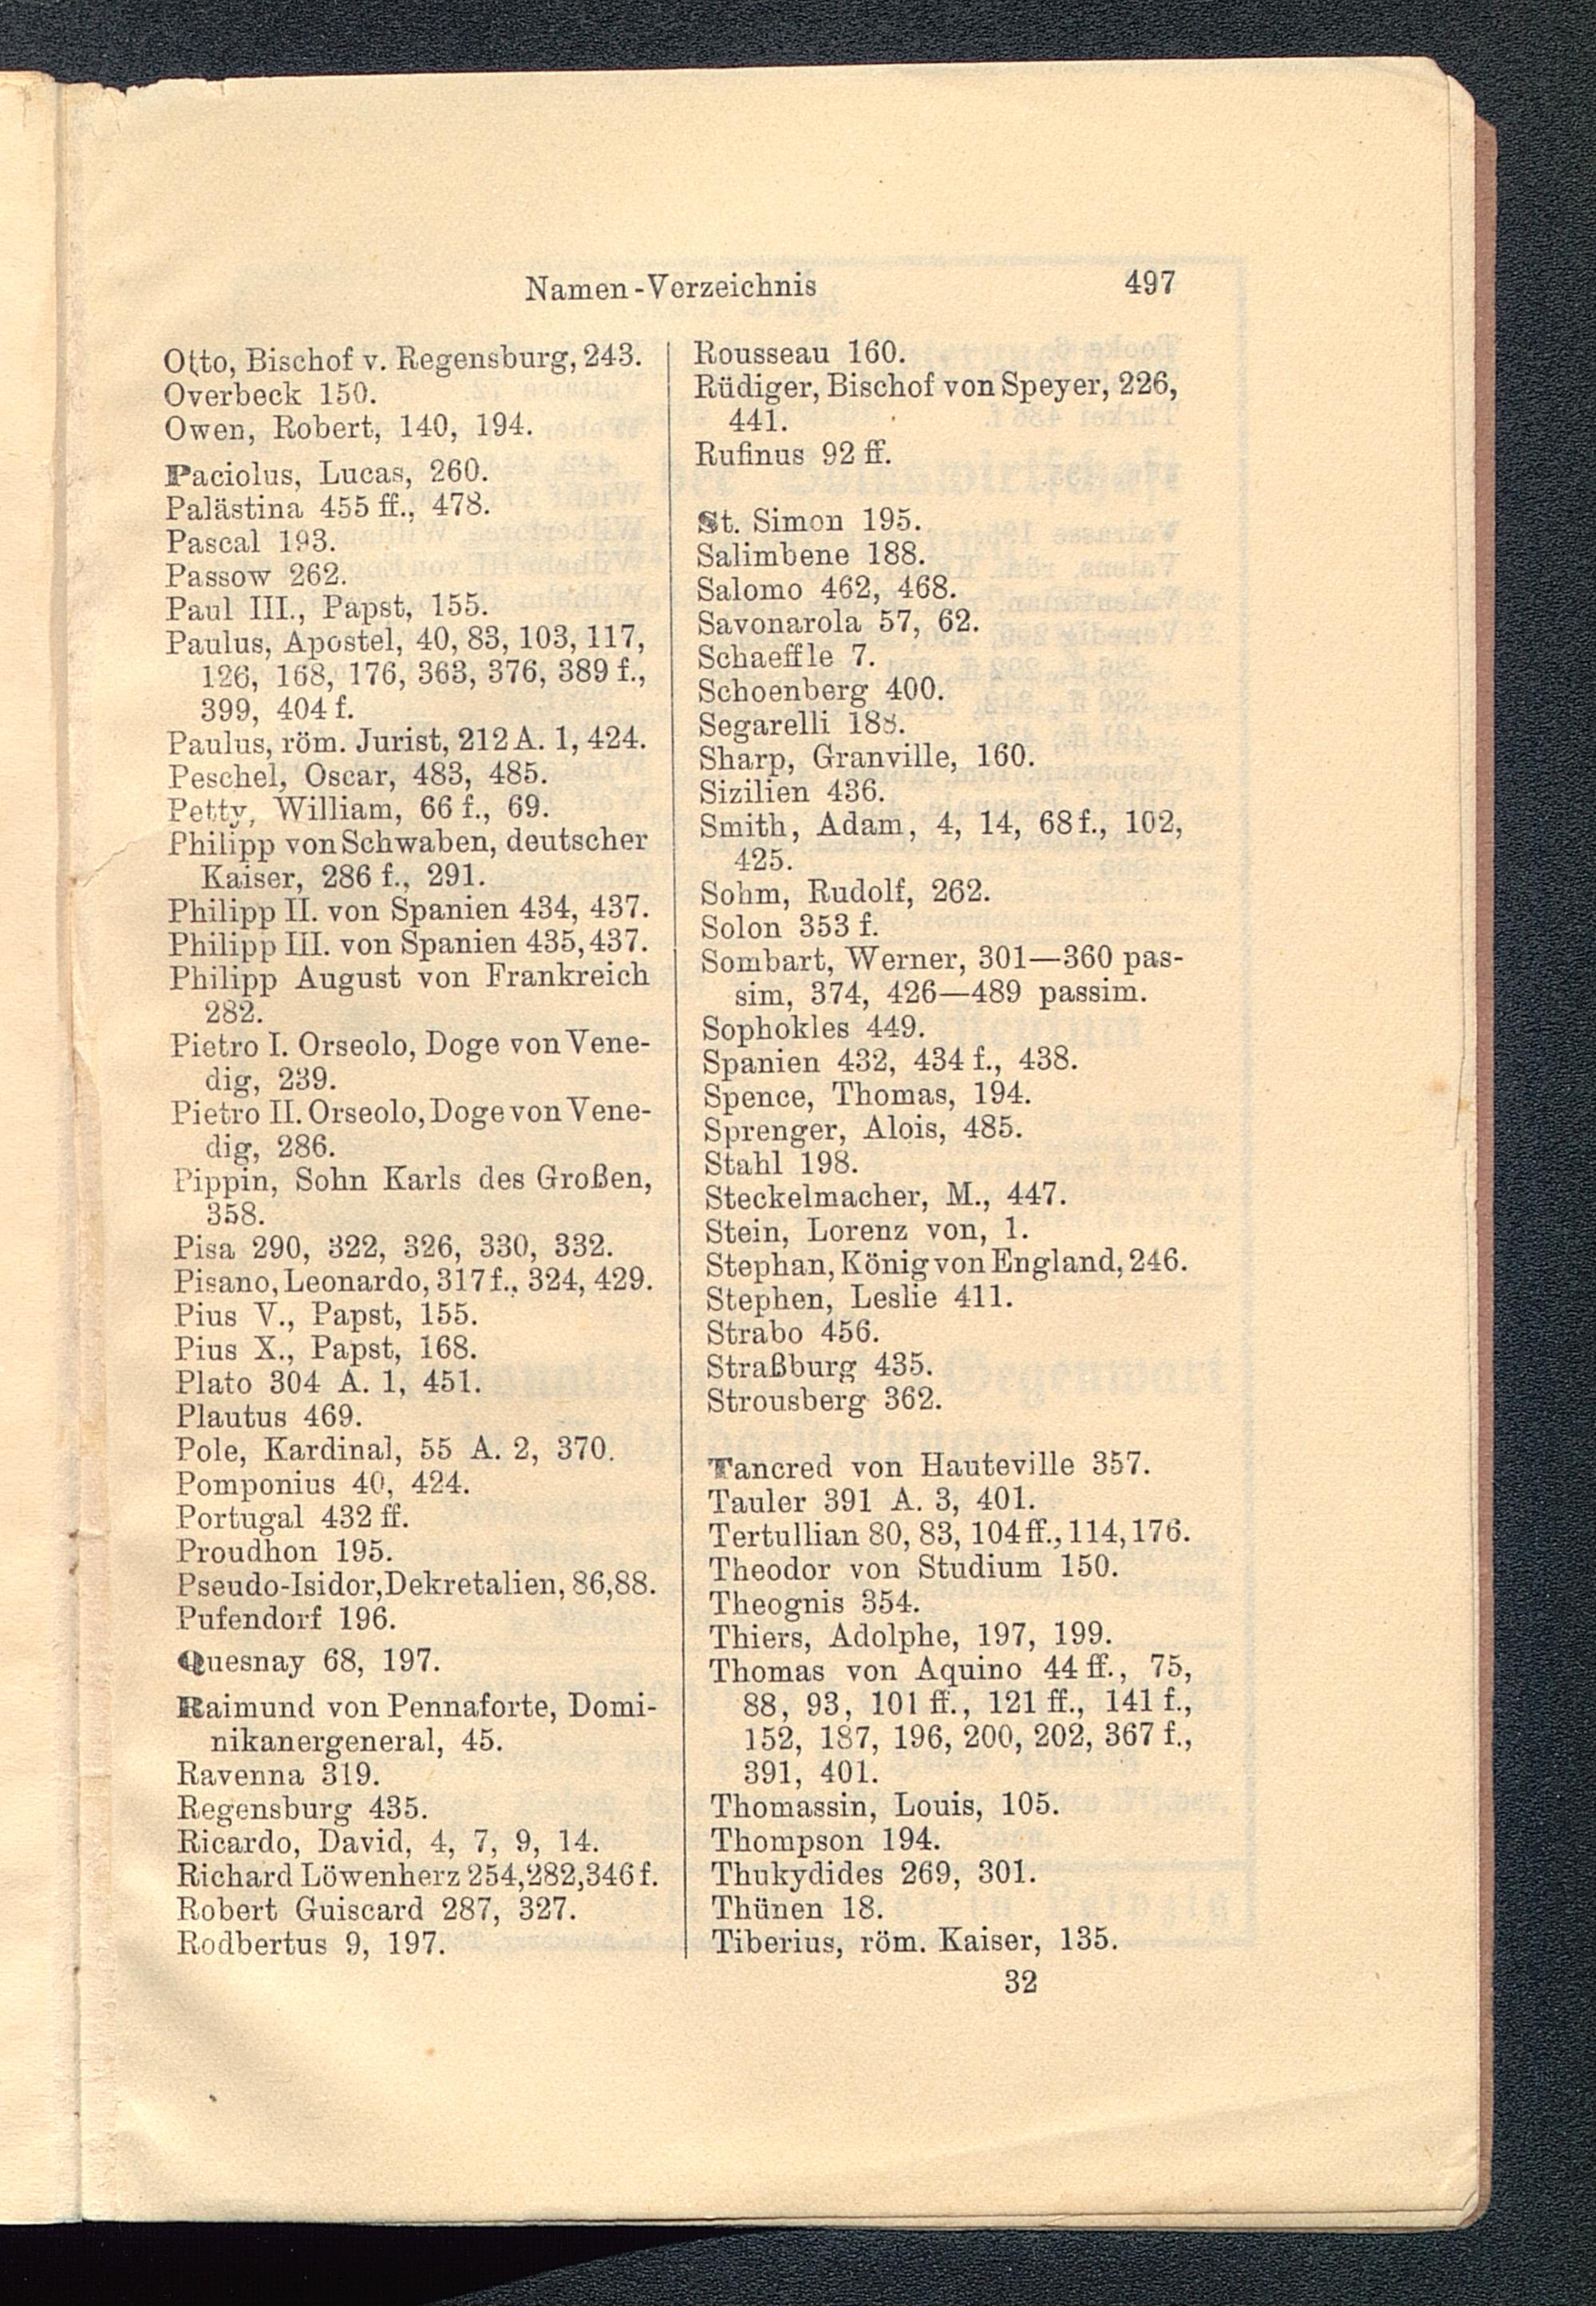 Namen-Verzeichnis 497
Otto, Bischof v. Regensburg, 243.
Overbeck 150.
Owen, Robert, 140, 194.
Paciolus, Lucas, 260.
Palästina 455 ff., 478.
Pascal 193.
Passow 262.
Paul III., Papst, 155.
Paulus, Apostel, 40, 83, 103, 117,
126, 168, 176, 363, 376, 389 f.,
399, 404 f.
Paulus, röm. Jurist, 212 A. 1, 424.
Peschel, Oscar, 483, 485.
Petty, William, 66 f., 69.
Philipp von Schwaben, deutscher
Kaiser, 286 f., 291.
Philipp II. von Spanien 434, 437.
Philipp III. von Spanien 435, 437.
Philipp August von Frankreich
282.
Pietro I. Orseolo, Doge von Vene-
dig, 239.
Pietro II. Orseolo, Doge von Vene-
dig, 286.
Pippin, Sohn Karls des Großen,
358.
Pisa 290, 322, 326, 330, 332.
Pisano, Leonardo, 317 f., 324, 429.
Pius V., Papst, 155.
Pius X., Papst, 168.
Plato 304 A. 1, 451.
Plautus 469.
Pole, Kardinal, 55 A. 2, 370.
Pomponius 40, 424.
Portugal 432 ff.
Proudhon 195.
Pseudo-Isidor, Dekretalien, 86, 88.
Pufendorf 196.
Quesnay 68, 197.
Raimund von Pennaforte, Domi-
nikanergeneral, 45.
Ravenna 319.
Regensburg 435.
Ricardo, David, 4, 7, 9, 14.
Richard Löwenherz 254, 282, 346 f.
Robert Guiscard 287, 327.
Rodbertus 9, 197.
Rousseau 160.
Rüdiger, Bischof von Speyer, 226,
441.
Rufinus 92 ff.
St. Simon 195.
Salimbene 188.
Salomo 462, 468.
Savonarola 57, 62.
Schaeffle 7.
Schoenberg 400.
Segarelli 188.
Sharp, Granville, 160.
Sizilien 436.
Smith, Adam, 4, 14, 68 f., 102,
425.
Sohm, Rudolf, 262.
Solon 353 f.
Sombart, Werner, 301—360 pas-
sim, 374, 426—489 passim.
Sophokles 449.
Spanien 432, 434 f., 438.
Spence, Thomas, 194.
Sprenger, Alois, 485.
Stahl 198.
Steckelmacher, M., 447.
Stein, Lorenz von, 1.
Stephan, König von England, 246.
Stephen, Leslie 411.
Strabo 456.
Straßburg 435.
Strousberg 362.
Tancred von Hauteville 357.
Tauler 391 A. 3, 401.
Tertullian 80, 83, 104 ff., 114, 176.
Theodor von Studium 150.
Theognis 354.
Thiers, Adolphe, 197, 199.
Thomas von Aquino 44 ff., 75,
88, 93, 101 ff., 121 ff., 141 f.,
152, 187, 196, 200, 202, 367 f.,
391, 401.
Thomassin, Louis, 105.
Thompson 194.
Thukydides 269, 301.
Thünen 18.
Tiberius, röm. Kaiser, 135.
32